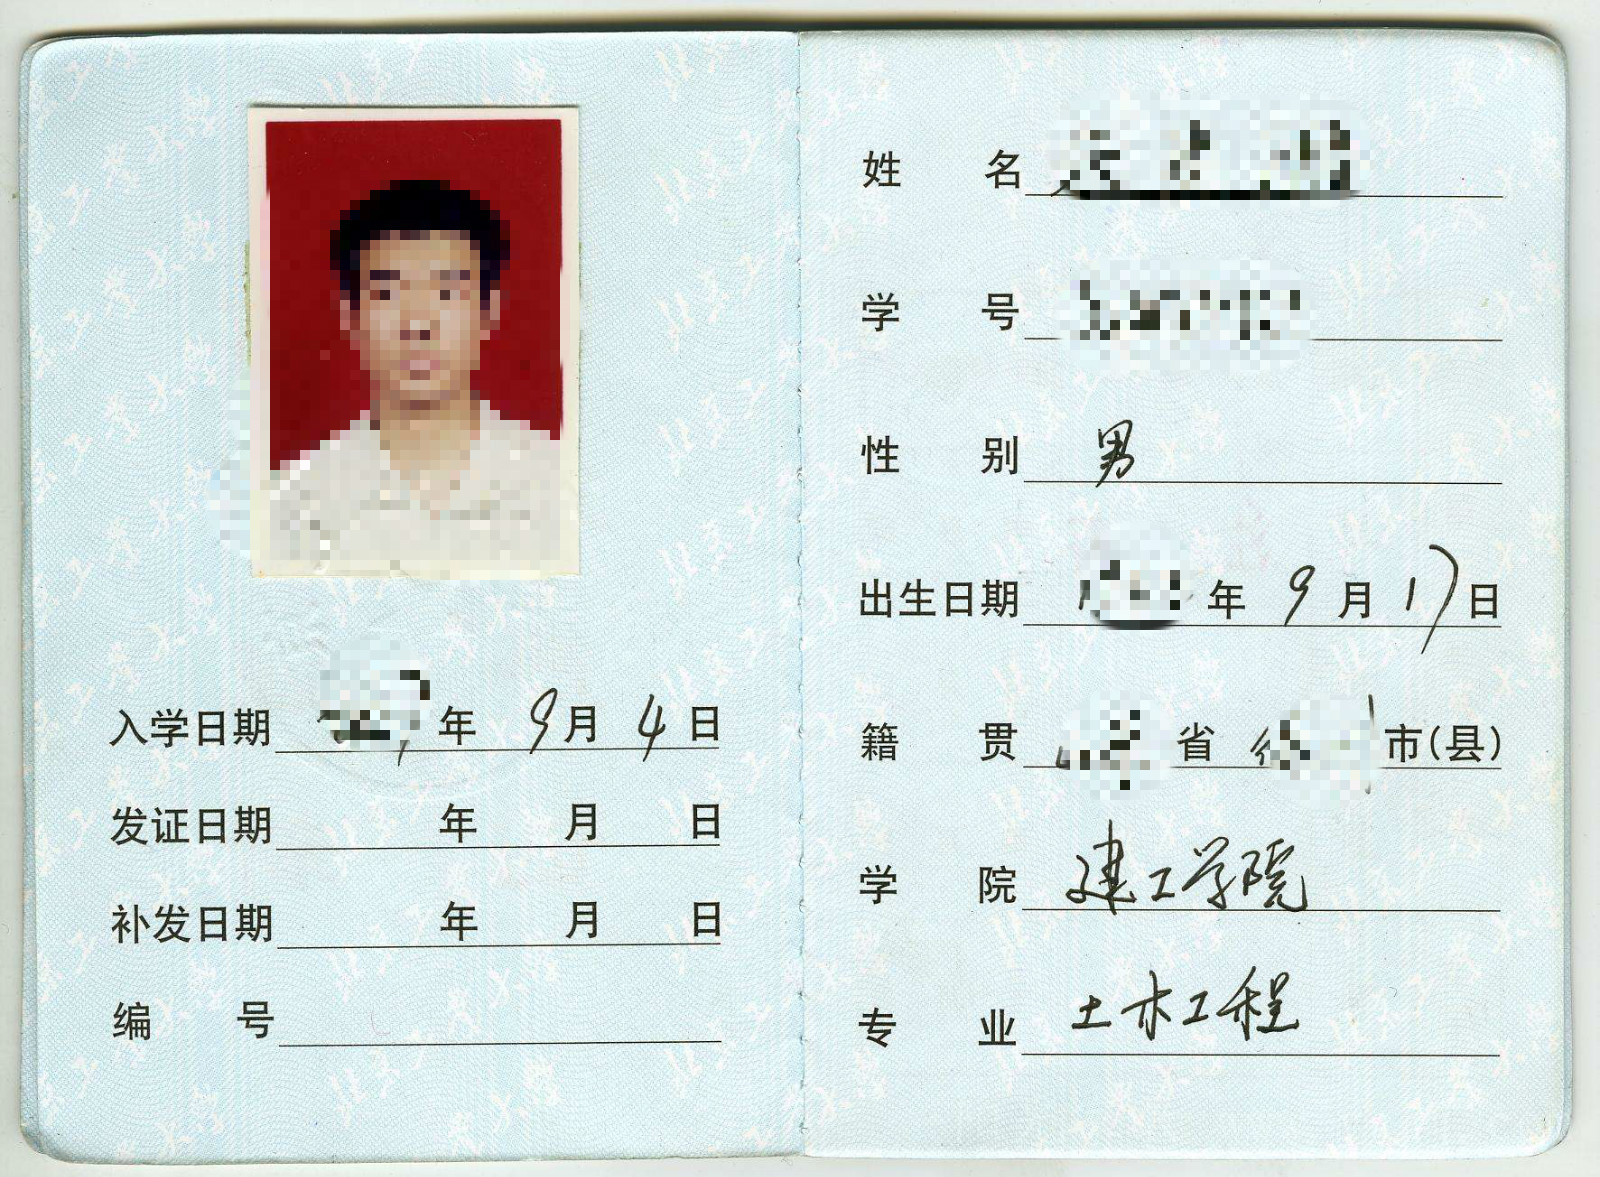 入学日期 年 9月 4日
发证日期 年 月 日
补发日期 年 月 日
编 号
姓 名
学 号
性 别 男
出生日期 年 9月 17日
籍 贯 省 市(县)
学 院 建工学院
专 业 土木工程